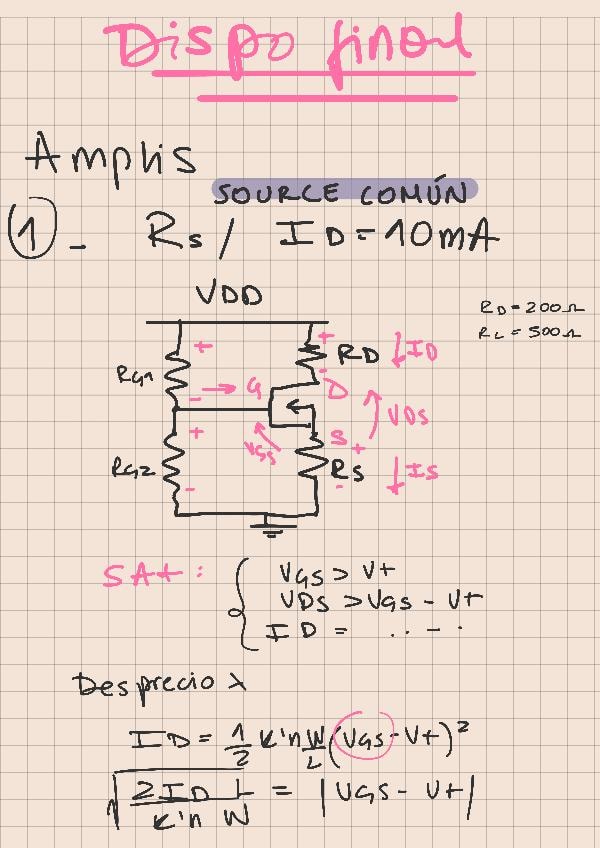 Dispo final
Amplis
SOURCE COMÚN
1 - Rs / ID = 10mA
VDD
RD = 200Ω
RL = 500Ω
+ +
RG1 RD ↓ID
- → G - D
+ VGS S + VDS
RG2 RS ↓IS
- -
SAt: { VGS > Vt
VDS > VGS - Vt
ID = .. - .
Desprecio λ
ID = 1/2 k'n W/L (VGS - Vt)²
√(2ID L / k'n W) = |VGS - Vt|